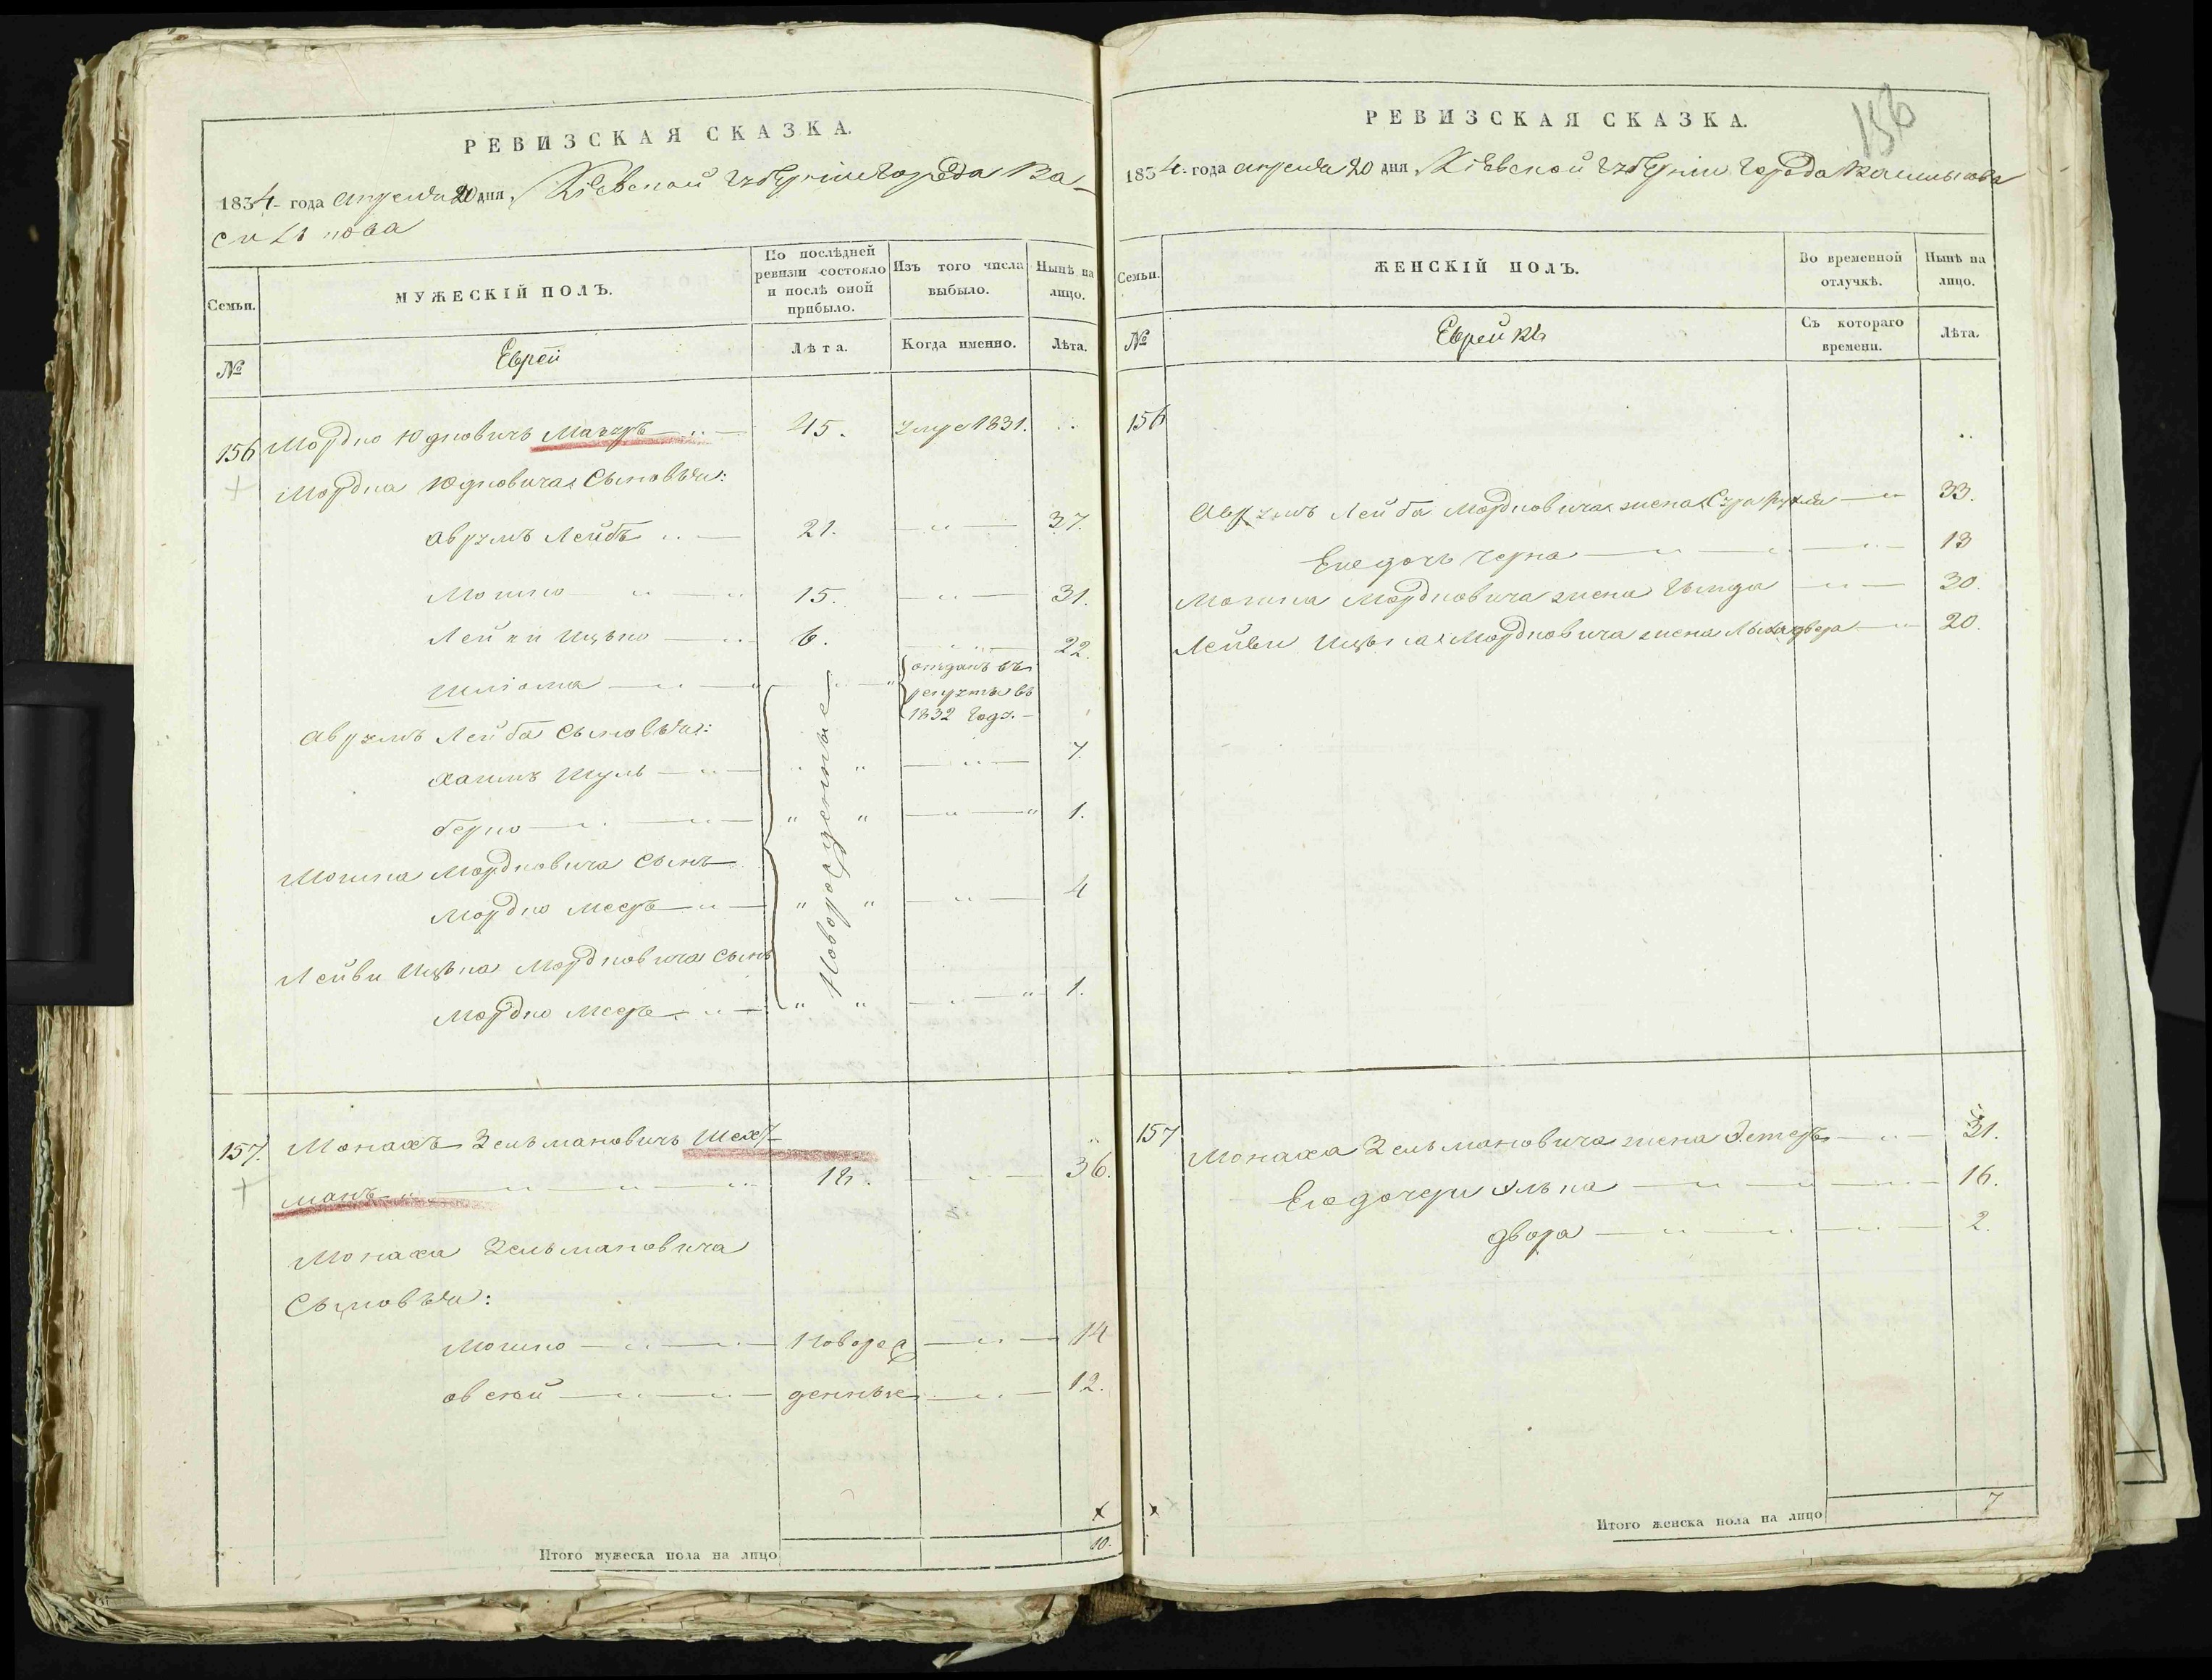 РЕВИЗСКАЯ СКАЗКА.
1834 года апреля 20 дня, Кіевской губерніи города Ва-
силькова
Семьи.
МУЖЕСКІЙ ПОЛЪ.
По послѣдней ревизіи состояло и послѣ оной прибыло.
Изъ того числа выбыло.
Нынѣ на лицо.
№
Еврей
Лѣта.
Когда именно.
Лѣта.
156 Мордко Юдковичъ Мазуръ 45. умре 1831.
Мордка Юдковича Сыновья:
Аврумъ Лейбъ 21. 37.
Мошко 15. 31.
Лейви Ицько 6. 22.
Шліома отданъ въ
рекруты въ
1832 году.
Аврумъ Лейба Сыновья:
Хаимъ Шуль 7.
берко 1.
Мошка Мордковича Сынъ
Мордко Мееръ 4
Лейви Ицька Мордковича Сынъ
Мордко Мееръ 1.
Новорожденные
157. Монахъ Зельмановичъ Шехт
манъ 18. 36.
Монаха Зельмановича
Сыновья:
Мошко Новорож 14
овсей денные 12.
Итого мужеска пола на лицо 10.
156
РЕВИЗСКАЯ СКАЗКА.
1834 года апреля 20 дня, Кіевской губерніи города Василькова
Семьи.
ЖЕНСКІЙ ПОЛЪ.
Во временной отлучкѣ.
Нынѣ на лицо.
№
Еврейки
Съ котораго времени.
Лѣта.
156
Аврумъ Лейба Мордковича жена Сура Рухля 33.
Его дочь Черна 13
Мошка Мордковича жена Гинда 30.
Лейви Ицька Мордковича жена двора 20.
157 Монаха Зельмановича жена Эстеръ 31.
Его дочери Элька 16.
двора 2.
Итого женска пола на лицо 7